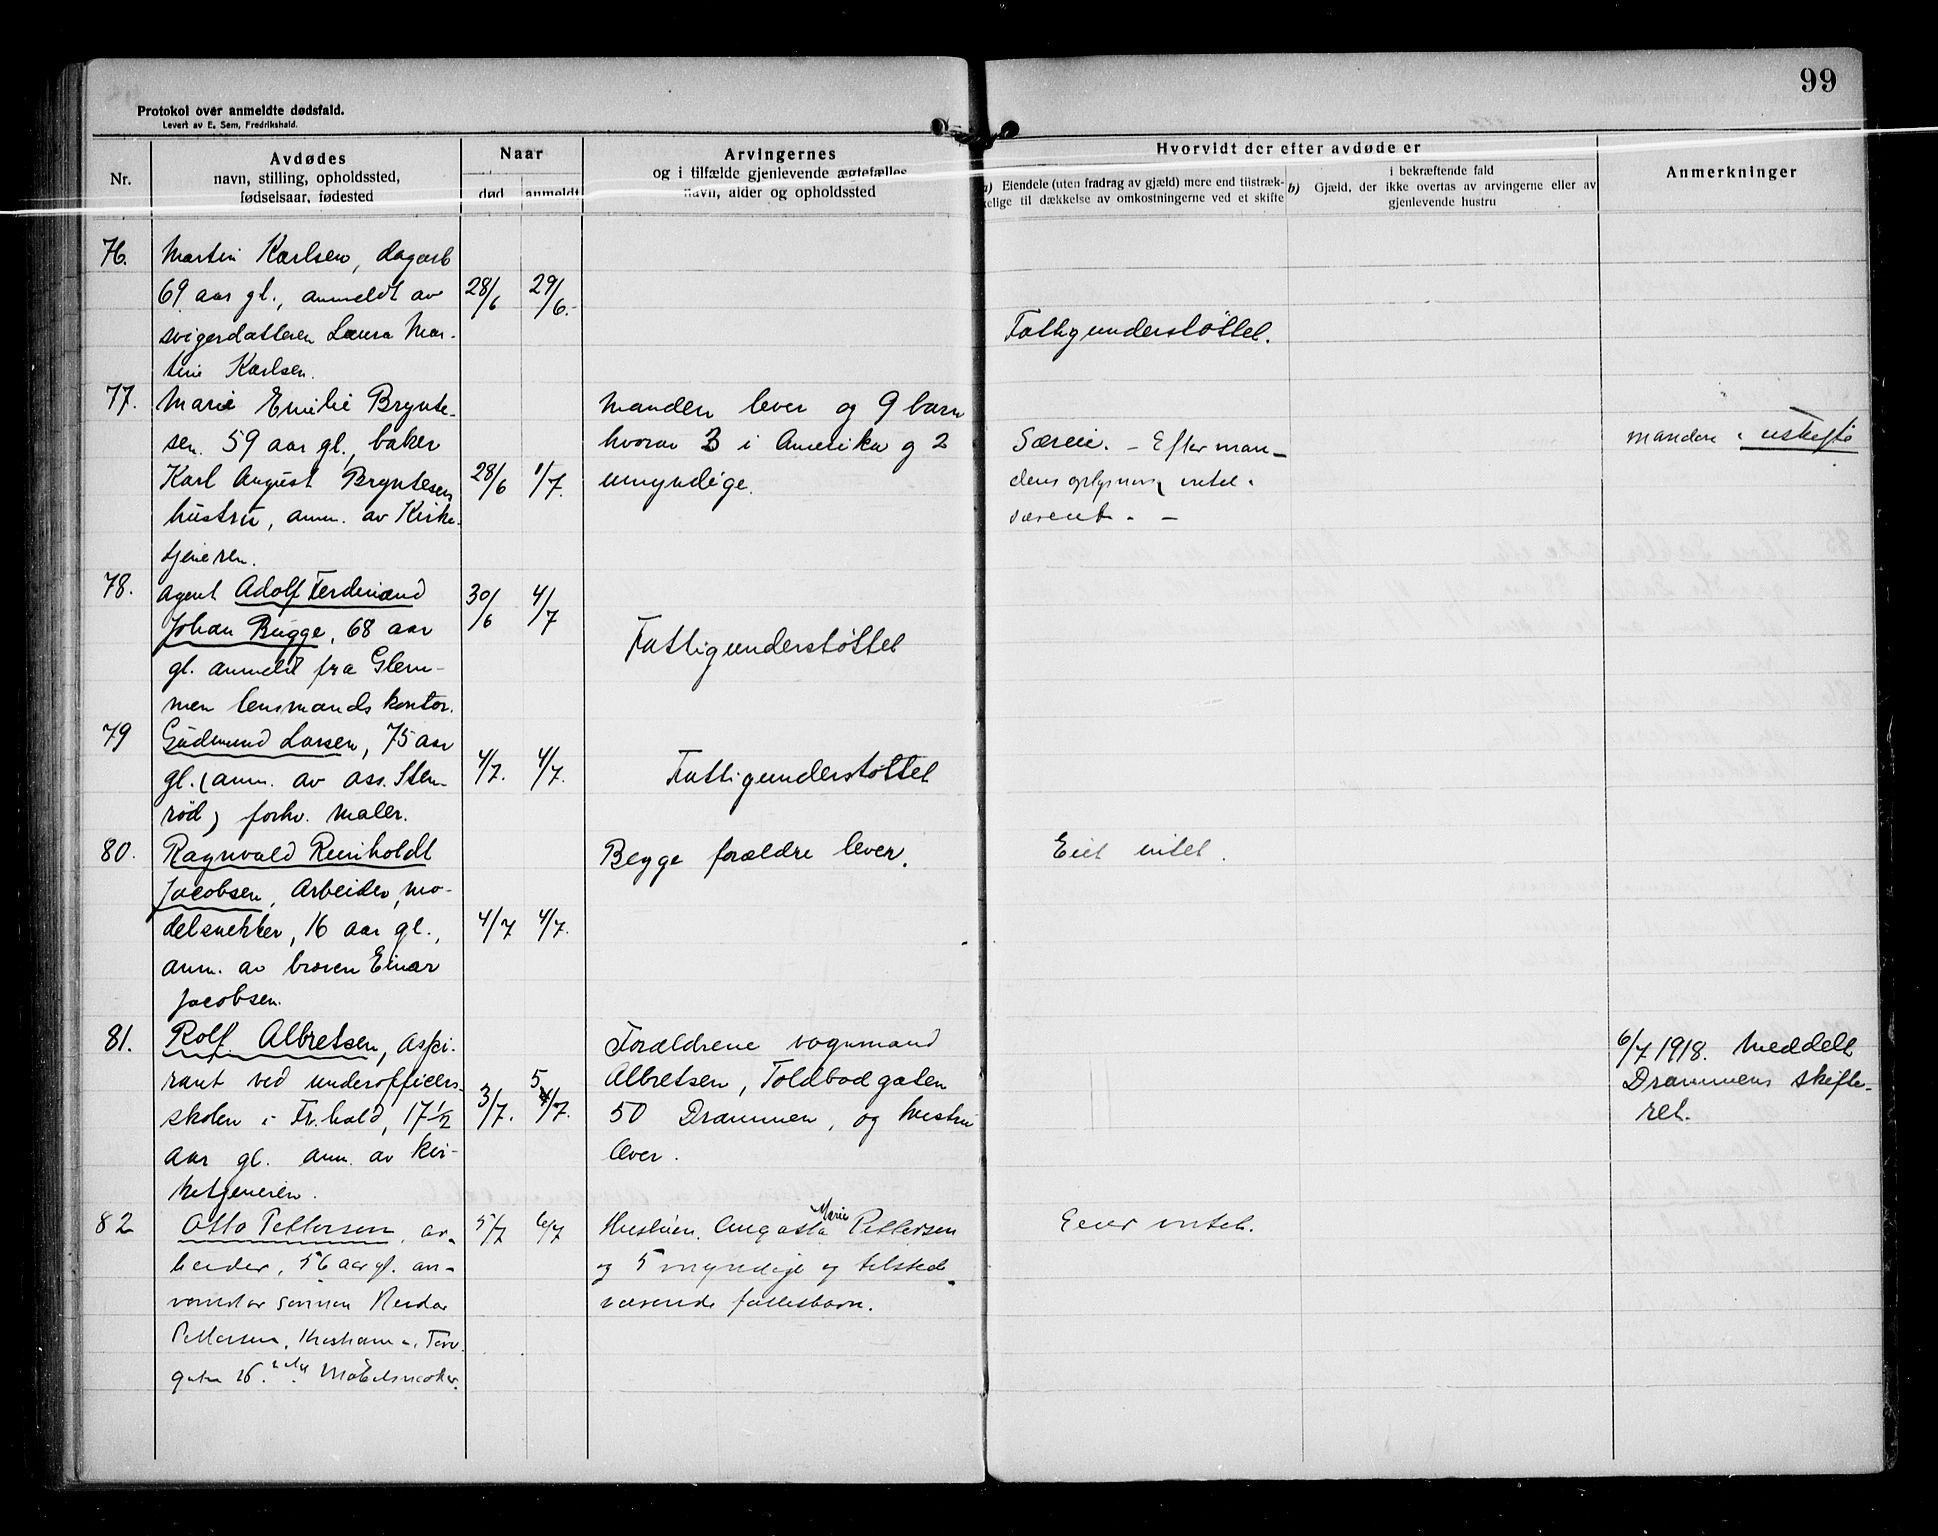 99
Protokol over anmeldte dødsfald.
Levert av E. Sem, Fredrikshald.
Nr.
Avdødes
navn, stilling, opholdssted,
fødselsaar, fødested
Naar
død
anmeldt
Arvingernes
og i tilfælde gjenlevende ægtefælles
navn, alder og opholdssted
Hvorvidt der efter avdøde er
a) Eiendele (uten fradrag av gjæld) mere end tilstræk-
kelige til dækkelse av omkostningerne ved et skifte
b) Gjæld, der
i bekræftende fald
ikke overtas av arvingerne eller av
gjenlevende hustru
Anmerkninger
76.
Martin Karlsen, dagarb
69 aar gl., anmeldt av
svigerdatteren Laura Mar-
tine Karlsen.
28/6
29/6.
Fattigunderstøttet.
77.
Marie Emilie Brynte-
sen. 59 aar gl., baker
Karl August Bryntesen
hustru, anm. av Kirke-
tjeneren.
28/6
1/7.
Manden lever og 9 barn
hvorav 3 i Amerika og 2
umyndige.
Særeie. - Efter man-
dens oplysning intet
særeie. -
manden i uskifte
78.
Agent Adolf Ferdinand
Johan Bugge, 68 aar
gl. anmeldt fra Glem-
men lensmandskontor.
30/6
4/7
Fattigunderstøttet
79
Gudmund Larsen, 75 aar
gl. (anm. av ass. Sten-
rød) forhv. maler.
4/7.
4/7.
Fattigunderstøttet
80.
Ragnvald Reinholdt
Jacobsen, Arbeider, mo-
delsnekker, 16 aar gl.,
anm. av broren Einar
Jacobsen.
4/7
4/7.
Begge forældre lever.
Eiet intet.
81.
Rolf Albretsen, Aspi-
rant ved underofficers-
skolen i Fr.hald, 17 1/2
aar gl. anm. av kir-
ketjeneren.
3/7.
5/7.
Forældrene vognmand
Albretsen, Toldbodgaten
50 Drammen, og hustru
lever.
6/7 1918. Meddelt
Drammens skifte-
ret.
82
Otto Pettersen, ar-
beider, 56 aar gl. an-
av sønnen Reidar
Pettersen,
gaten 26. Møbelsnekker.
5/7
6/7
Hustruen Augusta Marie Pettersen
og 5 myndige og tilsted-
værende fællesbarn.
Eier intet.